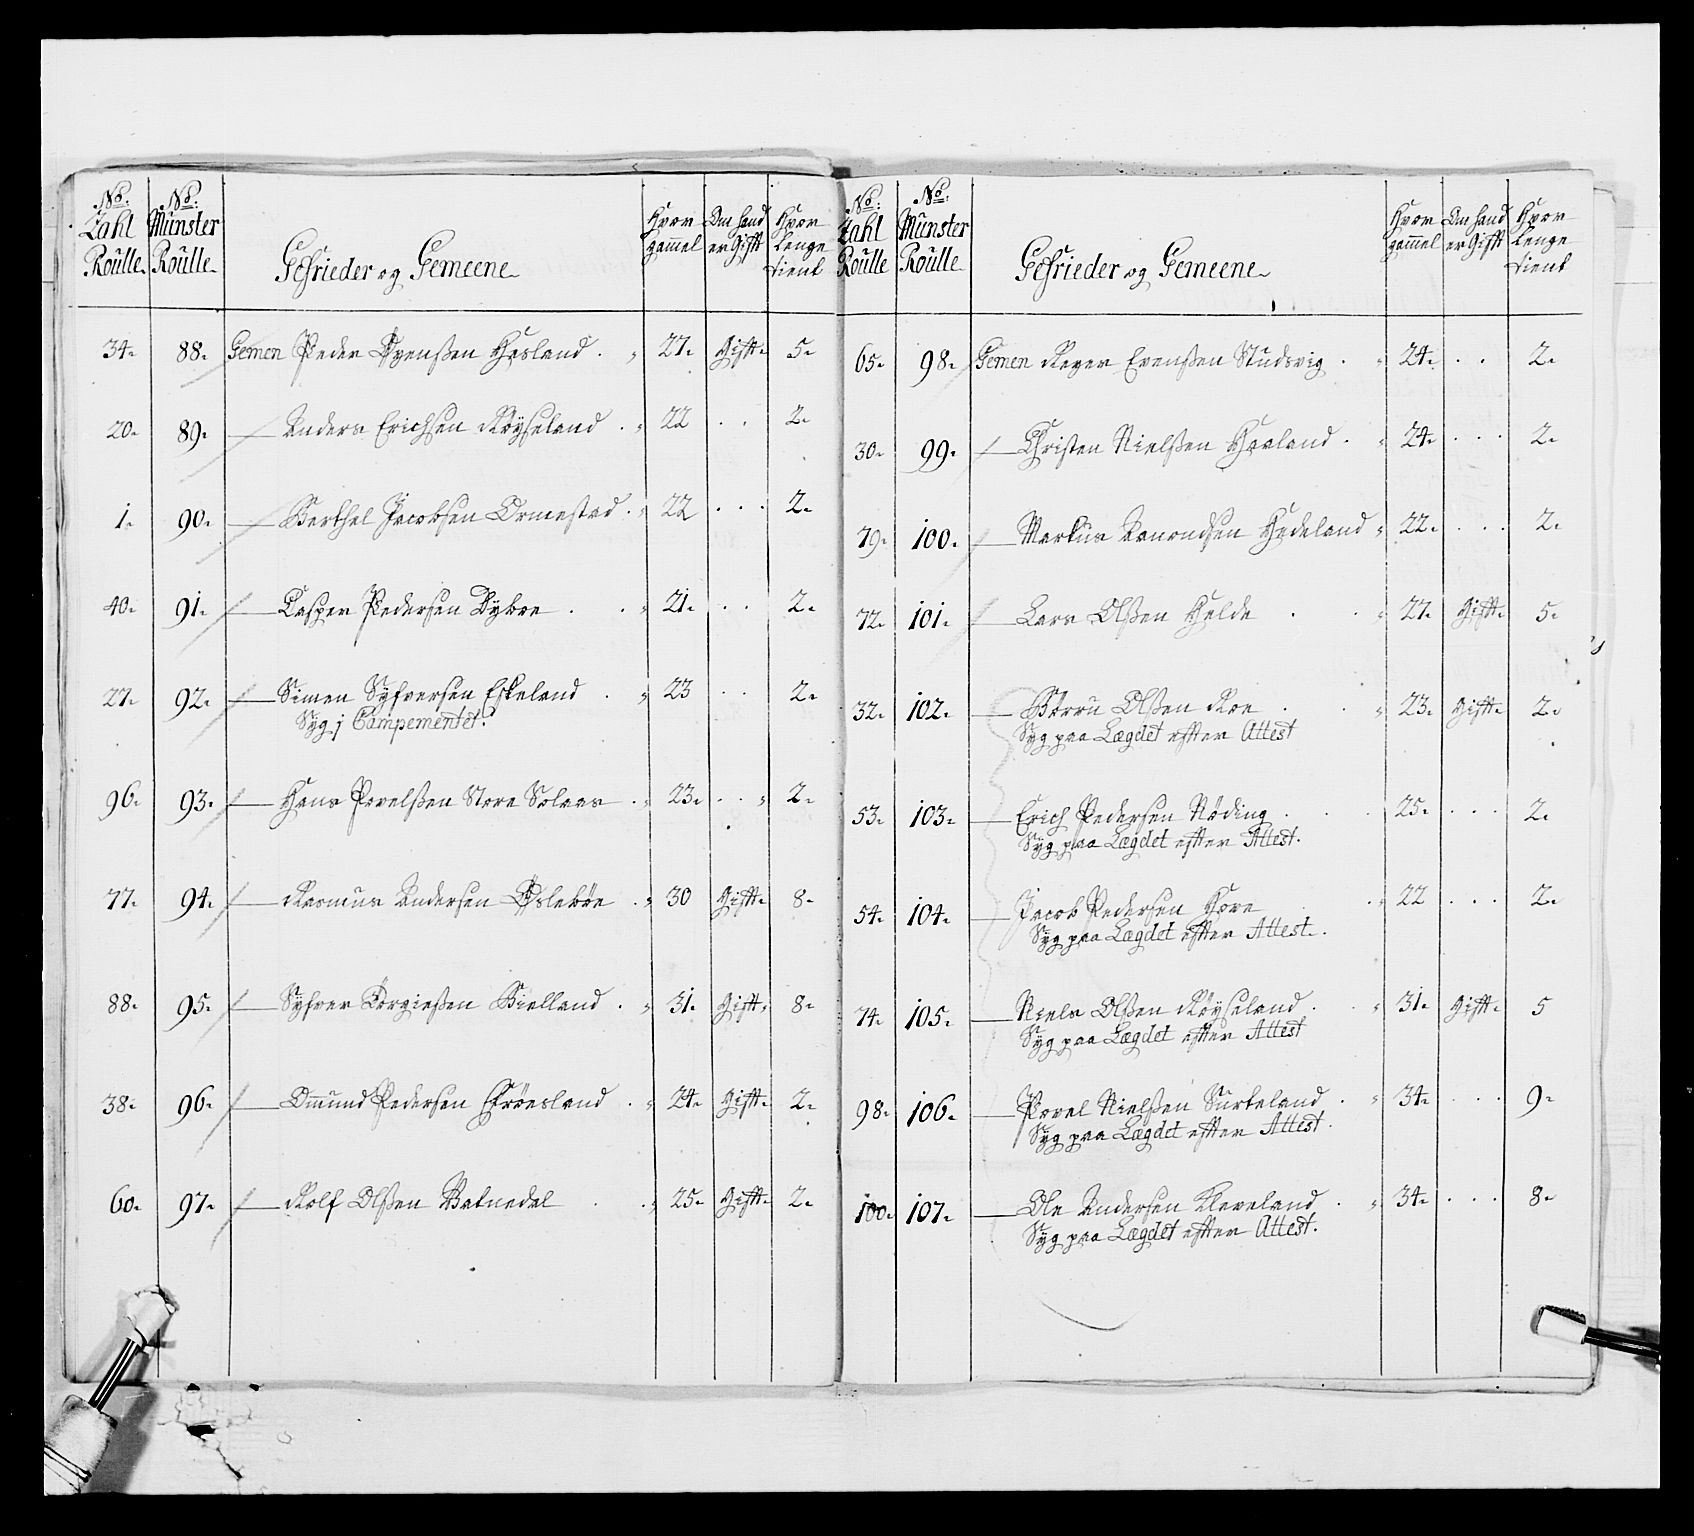 No: Zahl Roulle No: Münster Roulle Gefrieder og Gemeene Hvor gammel Om hand er Gifft Hvor lenge tient
34. 88. Gemen Peder Svenßen Hesland . 27. Gifft. 5.
20. 89. Anders Erichsen Röyseland . 22 . . 2.
1. 90. Berthel Jacobsen Ormestad . 22 . . . 2.
40. 91. Casper Pedersen Dyboe . . 21. . . 2.
27. 92. Simen Syfversen Eskeland . 23 . . 2.
Syg j Campementet.
96. 93. Hans Povelßen Store Solaas . 23. . . 2.
77. 94. Rasmus Andersen Ösleböe . 30 Gifft. 8.
88. 95. Syfver Törgießen Bielland . 31. Gifft. 8.
38. 96. Omund Pedersen Fröesland . 24. Gifft. 2.
60. 97. Rolf Olßen Vatnedal . . 25. Gifft. 2.
No: Zahl Roulle No: Münster Roulle Gefrieder og Gemeene Hvor gammel Om hand er Gifft Hvor lenge tient
65. 98. Gemen Reyer Evenßen Studsvig . 24. . . 2.
30. 99. Christen Nielßen Haaland . 24. . . . 2.
79. 100. Markus Aanondsen Hedeland 22. . . . 2.
72. 101. Lars Olßen Helde . . 27. Gifft. 5.
32. 102. Börru Olßen Roe . . 23. Gifft. 2.
Syg paa Lægdet effter Attest
53. 103. Erich Pedersen Nöding . . . 25. . . . 2.
Syg paa Lægdet effter Attest.
54. 104. Jacob Pedersen Hore . 22 . . . 2.
Syg paa Lægdet effter Attest.
74. 105. Niels Olßen Röyseland . . 31. Gifft. 5
Syg paa Lægdet effter Attest
98. 106. Povel Nielßen Surteland . 34. . . . 9.
Syg paa Lægdet effter Attest.
100. 107. Ole Andersen Kleveland . 34. . . . 8.
Syg paa Lægdet effter Attest.